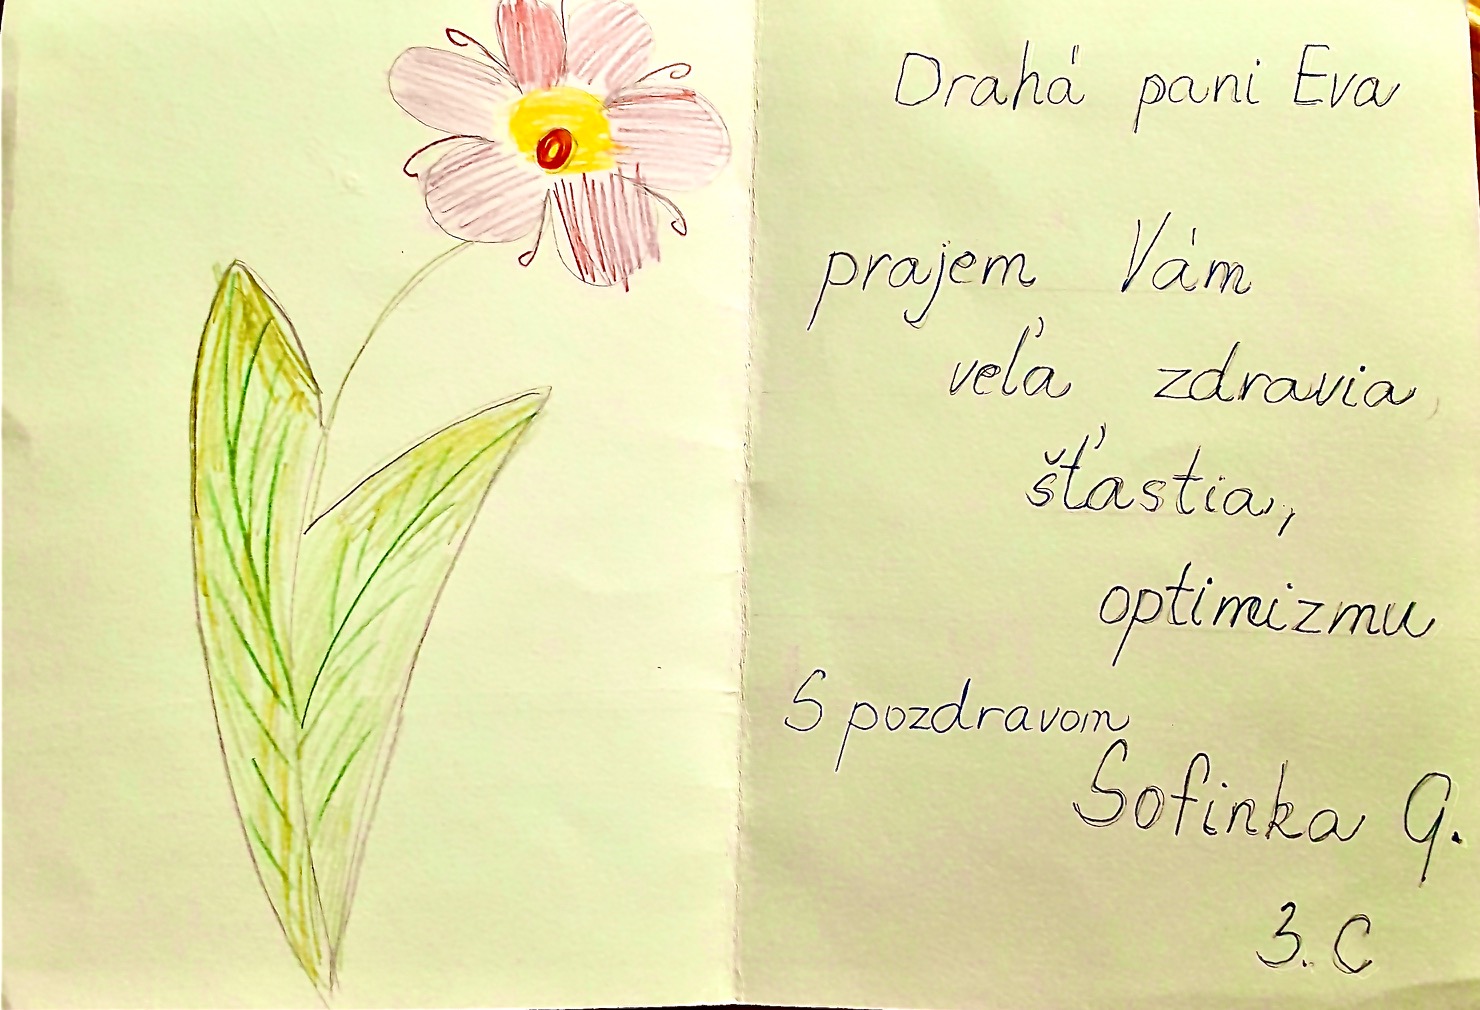 Drahá pani Eva
prajem Vám
veľa zdravia,
šťastia,
optimizmu
S pozdravom
Sofinka G.
3. C